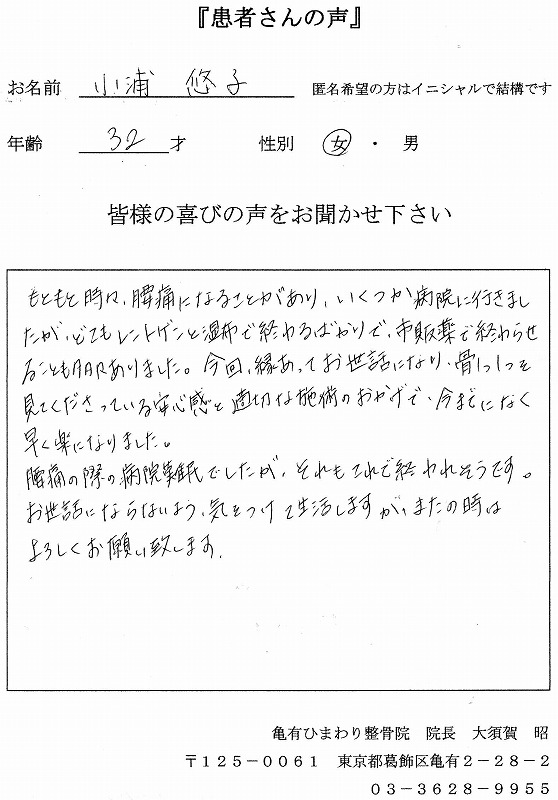 『患者さんの声』
お名前 小浦 悠子 匿名希望の方はイニシャルで結構です
年齢 32 才 性別 女 ・ 男
皆様の喜びの声をお聞かせ下さい
もともと時々、腰痛になることがあり、いくつか病院に行きまし
たが、どこもレントゲンと湿布で終わるばかりで、市販薬で終わらせ
ることもありました。今回、縁あってお世話になり、骨1つ1つを
見てくださっている安心感と適切な施術のおかげで、今までになく
早く楽になりました。
腰痛の際の病院難民でしたが、それもこれで終われそうです。
お世話にならないよう、気をつけて生活しますが、またの時は
よろしくお願い致します。
亀有ひまわり整骨院 院長 大須賀 昭
〒125-0061 東京都葛飾区亀有2-28-2
03-3628-9955